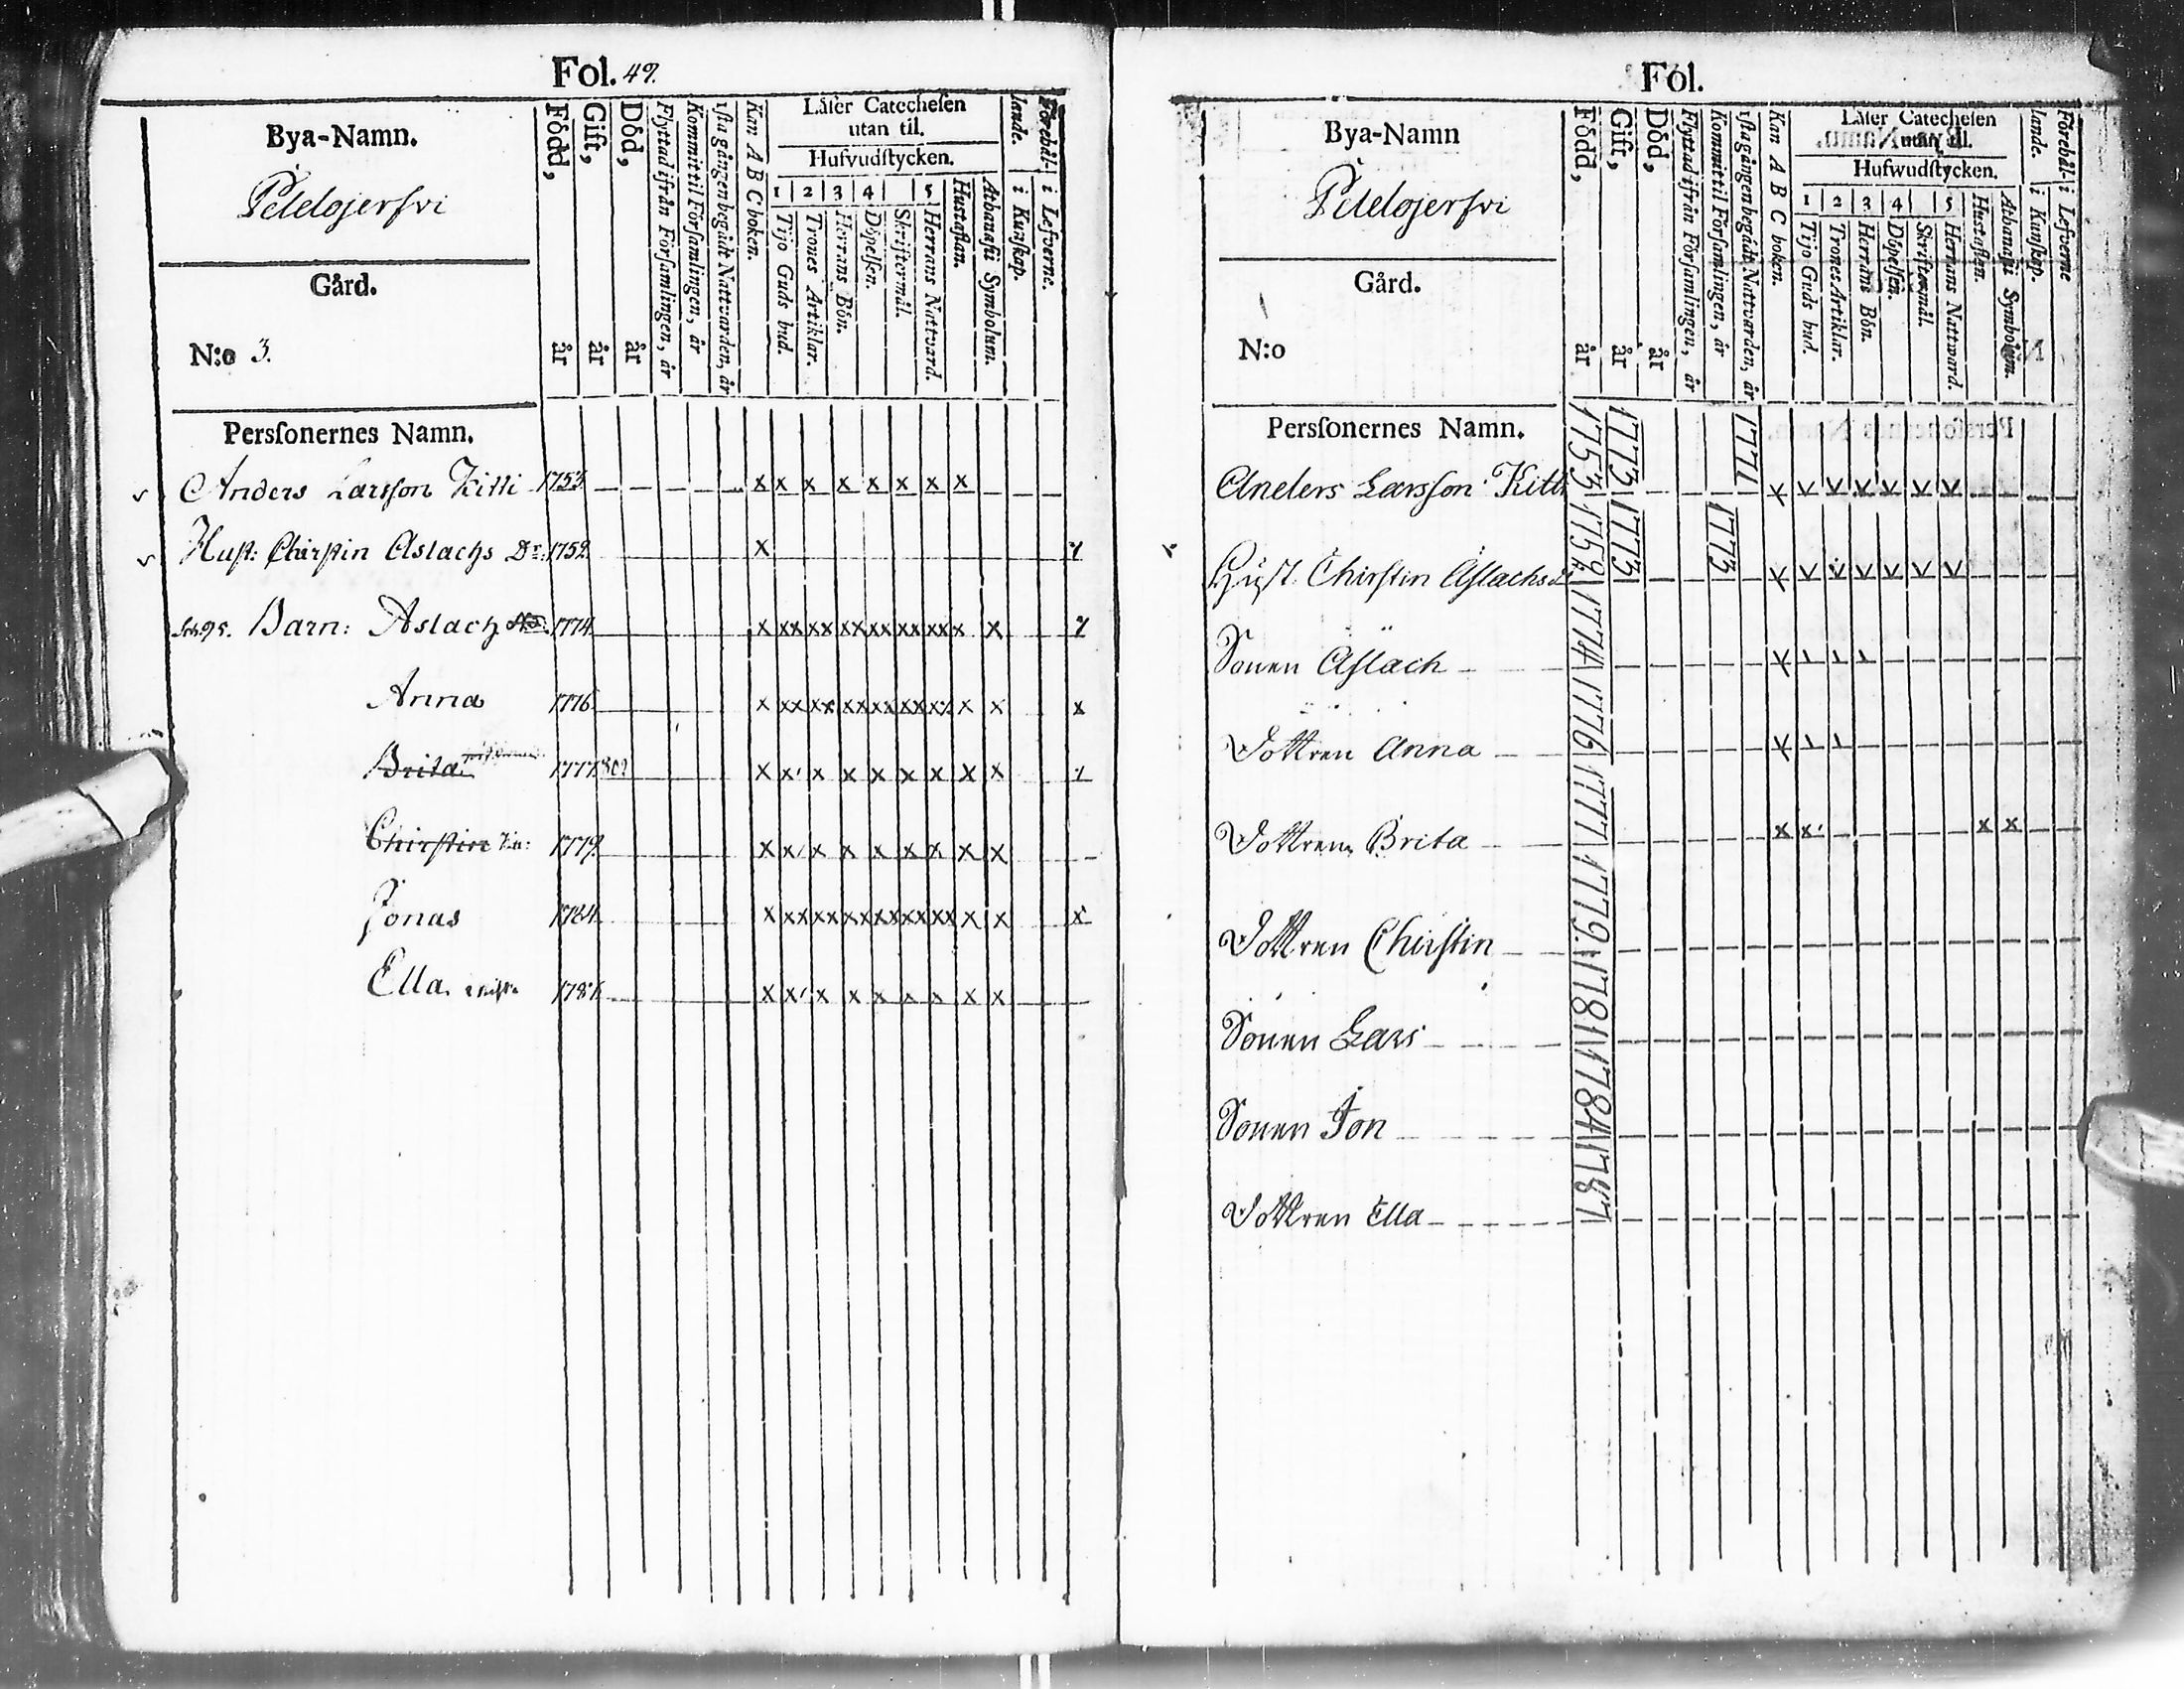 Fol. 49.
Bya-Namn.
Peldojerfvi
Gård.
N:o 3.
Född, år
Gift, år
Död, år
Flyttad ifrån Församlingen, år
Kommit til Församlingen, år
1sta gången begådt Nattvarden, år
Kan A B C boken.
Låser Catechesen
utan til.
Hufvudstycken.
1 2 3 4 5
Tijo Guds bud.
Trones Artiklar.
Herrans Bön.
Döpelsen.
Skriftermål.
Herrans Nattvard.
Hustaflan.
Athanasii Symbolum.
Förehål-
lande.
i Kunskap.
i Lefverne.
Personernes Namn.
Anders Larsson Kitti 1753 x x x x x x x x
Hust: Chirstin Aslachs Dr: 1752 x
Barn: Aslach 1774 x xx xx xx xx xx xx x x
Anna 1776 x xx xx xx xx xx xx x x x
Brita 1777 x x x x x x x x x
Chirstin 1779 x x x x x x x x x
Jonas 1784 x xx xx xx xx xx xx x x x
Ella 1787 x x x x x x x x x
Fol.
Bya-Namn
Peldojerfvi
Gård.
N:o
Född, år
Gift, år
Död, år
Flyttad ifrån Församlingen, år
Kommit til Församlingen, år
1sta gången begådt Nattvarden, år
Kan A B C boken.
Låser Catechesen
utan till.
Hufwudstycken.
1 2 3 4 5
Tijo Guds bud.
Trones Artiklar.
Herrans Bön.
Döpelsen.
Skriftermål.
Herrans Natward.
Hustaflan.
Athanasii Symbolum.
Förehål-
lande.
i Kunskap.
i Lefverne
Personernes Namn.
Anders Larsson Kitti 1753 1773 1771
Hust. Chirstin Aslachs 1759 1773 1773
Sonen Aslach 1774
Dottren Anna 1776
Dottren Brita 1777 x x x x
Dottren Chirstin 1779
Sonen Lars 1781
Sonen Jon 1784
Dottren Ella 1787